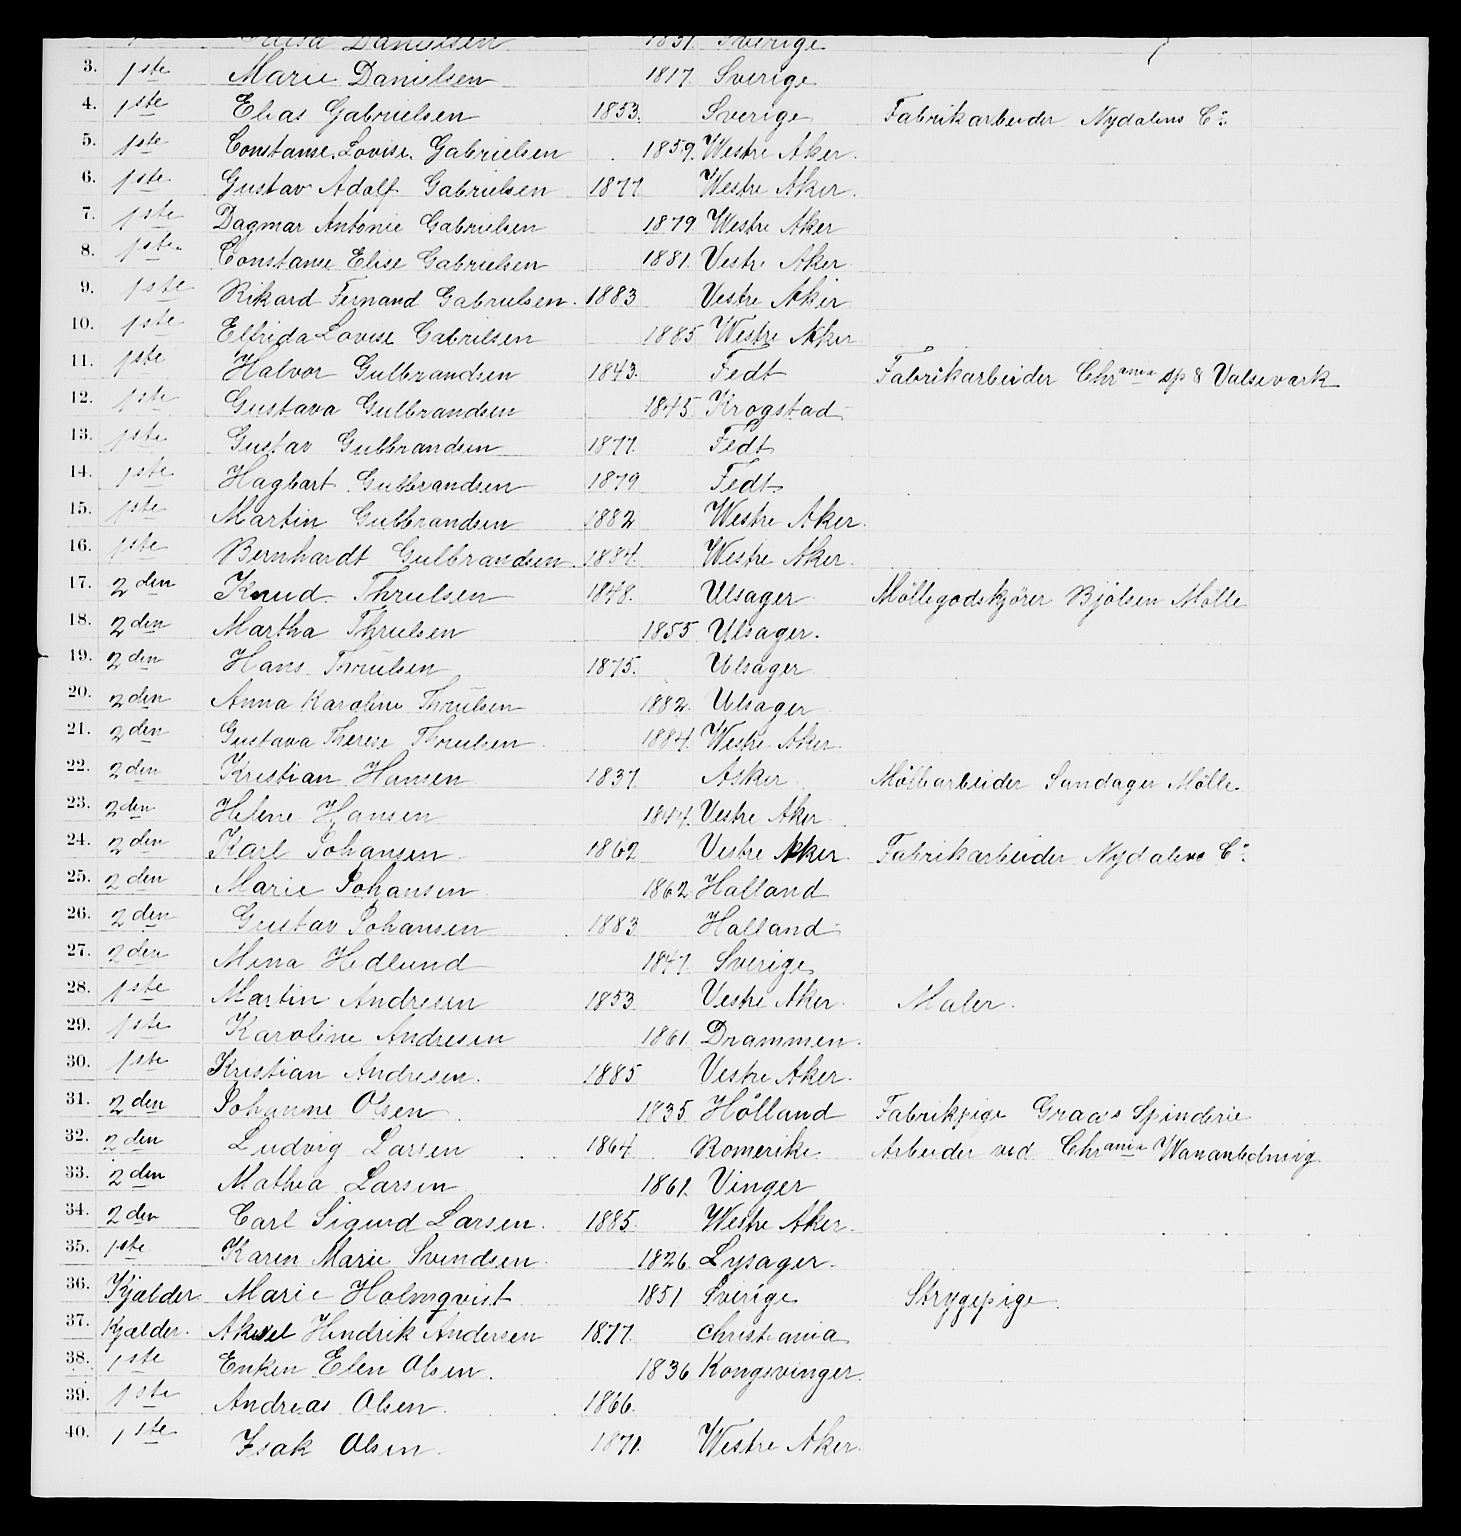 Danielsen 1851 Sverige
3. 1ste Marie Danielsen 1817. Sverige
4. 1ste Elias Gabrielsen 1853. Sverige Fabrikarbeider Nydalens Co.
5. 1ste Constanse Lovise Gabrielsen 1859. Westre Aker.
6. 1ste Gustav Adolf Gabrielsen 1877 Westre Aker.
7. 1ste Dagmar Antonie Gabrielsen 1879 Westre Aker
8. 1ste Constanse Elise Gabrielsen 1881. Vestre Aker.
9. 1ste Rikard Fernand Gabrielsen. 1883 Vestre Aker
10. 1ste Elfrida Lovise Gabrielsen 1885 Westre Aker
11. 1ste Halvor Gulbrandsen 1843. Fedt Fabrikarbeider Chrania Sp & Valseværk
12. 1ste Gustava Gulbrandsen 1845 Krogstad
13. 1ste Gustav Gulbrandsen 1877. Fedt
14. 1ste Hagbart Gulbrandsen 1879 Fedt
15. 1ste Martin Gulbrandsen 1882 Westre Aker.
16. 1ste Bernhardt Gulbrandsen. 1884. Westre Aker.
17. 2den Knud Thrulsen 1848. Ulsager Møllegodskjører Bjølsen Mølle
18. 2den Martha Thrulsen 1855 Ulsager.
19. 2den Hans Thrulsen 1875. Ulsager
20. 2den Anna Karoline Thrulsen 1882. Ulsager
21. 2den Gustava Therese Thrulsen 1884. Westre Aker.
22. 2den Kristian Hansen 1837 Asker Møllearbeider Sandager Mølle.
23. 2den Helene Hansen 1844. Vestre Aker.
24. 2den Karl Johansen 1862 Vestre Aker. Fabrikarbeider Nydalens Co.
25. 2den Marie Johansen 1862 Halland
26. 2den Gustav Johansen 1883 Halland
27. 2den Mina Hedlund 1847. Sverige
28. 1ste Martin Andresen 1853 Vestre Aker. Maler.
29. 1ste Karoline Andresen 1861 Drammen.
30. 1ste Kristian Andresen. 1885 Vestre Aker.
31. 2den Johanne Olsen 1835 Hølland Fabrikpige Graa's Spinderie
32. 2den Ludvig Larsen 1864 Romerike Arbeider ved Chrania
33. 2den Mathea Larsen 1861. Vinger
34. 2den Carl Sigurd Larsen. 1885. Westre Aker.
35. 1ste Karen Marie Svendsen. 1826. Lysager.
36. Kjælder Marie Holmqvist 1851 Sverige Strygepige.
37. Kjælder. Aksel Hendrik Andersen 1877. Christiania
38. 1ste Enken Elen Olsen. 1836 Kongsvinger
39. 1ste Andreas Olsen. 1866.
40. 1ste Isak Olsen. 1871. Westre Aker.